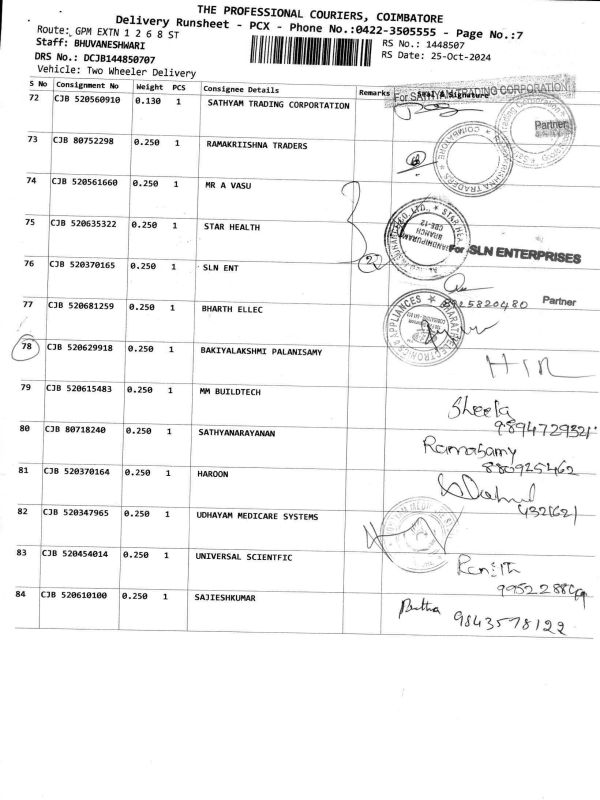 THE PROFESSIONAL COURIERS, COIMBATORE
Delivery Runsheet - PCX - Phone No.:0422-3505555 - Page No.:7
Route: GPM EXTN 1 2 6 8 ST
Staff: BHUVANESHWARI
RS No.: 1448507
DRS No.: DCJB144850707
RS Date: 25-Oct-2024
Vehicle: Two Wheeler Delivery
S No Consignment No Weight PCS Consignee Details Remarks Seal & Signature
72 CJB 520560910 0.130 1 SATHYAM TRADING CORPORTATION
For SATHYAM TRADING CORPORATION
Partner
73 CJB 80752298 0.250 1 RAMAKRIISHNA TRADERS
74 CJB 520561660 0.250 1 MR A VASU
75 CJB 520635322 0.250 1 STAR HEALTH
BRANCH
CBE-12
For SLN ENTERPRISES
76 CJB 520370165 0.250 1 SLN ENT
Partner
77 CJB 520681259 0.250 1 BHARTH ELLEC
BHARATH ELECTRONICS & APPLIANCES
78 CJB 520629918 0.250 1 BAKIYALAKSHMI PALANISAMY
79 CJB 520615483 0.250 1 MM BUILDTECH
Sheela
9894729321
80 CJB 80718240 0.250 1 SATHYANARAYANAN
Ramasamy
880925462
81 CJB 520370164 0.250 1 HAROON
82 CJB 520347965 0.250 1 UDHAYAM MEDICARE SYSTEMS
83 CJB 520454014 0.250 1 UNIVERSAL SCIENTFIC
Ranjith
84 CJB 520610100 0.250 1 SAJIESHKUMAR
9843578122